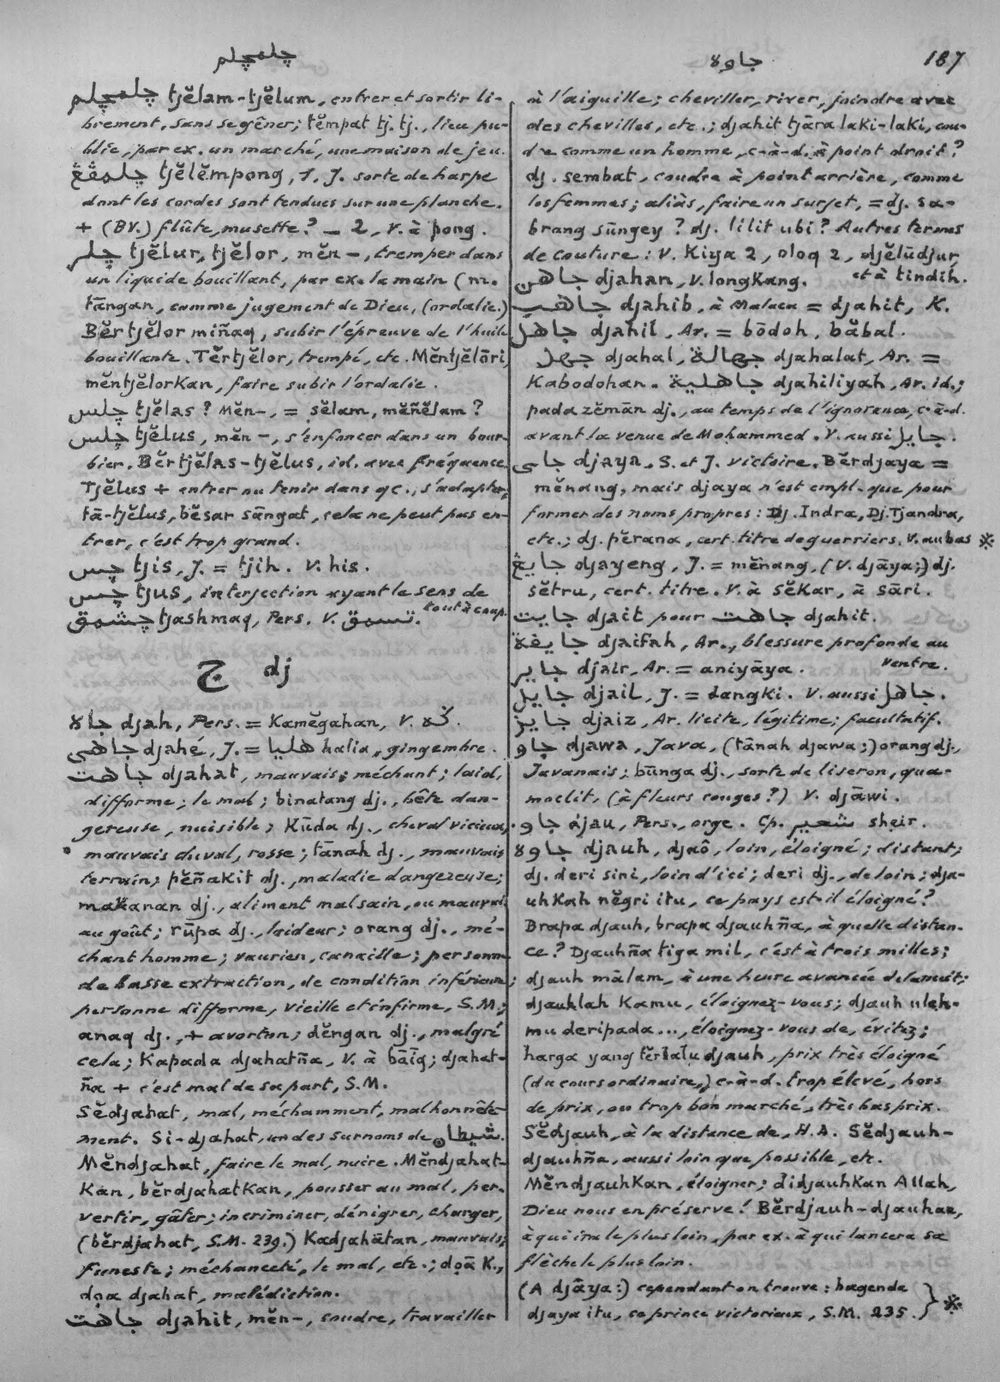 چلمچلم
جاوه
187
چلمچلم tjĕlam-tjĕlum, entrer et sortir li-
brement, sans se gêner; tĕmpat tj. tj., lieu pu-
blic, par ex. un marché, une maison de jeu.
چلمڤڠ tjĕlĕmpong, S. J. sorte de harpe
dont les cordes sont tendues sur une planche.
+ (BV.) flûte, musette? – 2, V. à pong.
چلر tjĕlur, tjĕlor, mĕn –, tremper dans
un liquide bouillant, par ex. la main (m.
tāngan, comme jugement de Dieu, (ordalie.)
Bĕrtjĕlor miñaq, subir l'épreuve de l'huile
bouillante. Tĕrtjĕlor, trempé, etc. Mĕntjĕlāri,
mĕntjĕlorkan, faire subir l'ordalie.
چلس tjĕlas? Mĕn-, = sĕlam, mĕñĕlam?
چلس tjĕlus, mĕn –, s'enfoncer dans un bour-
bier. Bĕrtjĕlas-tjĕlus, id. avec fréquence
Tjĕlus + entrer ou tenir dans qc., s'adapter;
tā-tjĕlus, bĕsar sāngat, cela ne peut pas en-
trer, c'est trop grand.
چس tjis, J. = tjih. V. his.
چس tjus, interjection ayant le sens de
tout à coup.
چشمق tjashmaq, Pers. V. تسمق.
ج dj
جاه djah, Pers. = Kamĕgahan, V. که.
جاهى djahé, J. = هليا halia, gingembre.
جاهت djahat, mauvais; méchant; laid,
difforme; le mal; binatang dj., bête dan-
gereuse, nuisible; Kūda dj., cheval vicieux,
mauvais cheval, rosse; tānah dj., mauvais
terrain; pĕñakit dj., maladie dangereuse;
makanan dj., aliment malsain, ou mauvais
au goût; rūpa dj., laideur; orang dj., mé-
chant homme; vaurien, canaille; personne
de basse extraction, de condition inférieure;
personne difforme, vieille et infirme, S.M.;
anaq dj., + avorton; dĕngan dj., malgré
cela; Kapada djahatña, V. à bāïq; djahat-
ña + c'est mal de sa part, S.M.
Sĕdjahat, mal, méchamment, malhonnête-
ment. Si-djahat, un des surnoms de شيطان.
Mĕndjahat, faire le mal, nuire. Mĕndjahat-
Kan, bĕrdjahatKan, pousser au mal, per-
vertir, gâter; incriminer, dénigrer, charger,
(bĕrdjahat, S.M. 239.) Kadjahātan, mauvais;
funeste; méchanceté, le mal, etc.; doā K.,
doa djahat, malédiction.
جاهت djahit, mĕn-, coudre, travailler
à l'aiguille; cheviller, river, joindre avec
des chevilles, etc.; djahit tjāra laki-laki, cou-
dre comme un homme, c-à-d. à point droit?
dj. sembat, coudre à point arrière, comme
les femmes; aliàs, faire un surjet, = dj. sa-
brang sūngey? dj. lilit ubi? Autres termes
de couture: V. Kiya 2, oloq 2, djĕlūdjur,
et à tindih.
جاهن djahan, V. longKang.
جاهب djahib, à Malaca = djahit, K.
جاهل djahil, Ar. = bōdoh, bābal.
جهل djahal, جهالة djahalat, Ar. =
Kabodohan. جاهلية djahiliyah, Ar. id.;
pada zĕmān dj., au temps de l'ignorance, c-à-d.
avant la venue de Mohammed. V. aussi جايل.
جاى djaya, S. et J. victoire. Bĕrdjaya =
mĕnang, mais djaya n'est empl. que pour
former des noms propres: Dj. Indra, Dj. Tjandra,
etc.; dj. pĕrana, cert. titre de guerriers. V. au bas ※
جايڠ djayeng, J. = mĕnang, (V. djāya;) dj.
sĕtru, cert. titre. V. à sĕkar, à sāri.
جايت djait pour جاهت djahit.
جايفة djaifah, Ar., blessure profonde au
ventre.
جاير djair, Ar. = aniyāya.
جايل djail, J. = dangki. V. aussi جاهل.
جايز djaiz, Ar. licite, légitime; facultatif.
جاو djawa, Java, (tānah djawa;) orang dj.,
Javanais; būnga dj., sorte de liseron, qua-
moclit, (à fleurs rouges?) V. djāwi.
جاو djau, Pers., orge. Cp. شعير sheir.
جاوه djauh, djaô, loin, éloigné; distant;
dj. deri sini, loin d'ici; deri dj., de loin; dja-
uhkah nĕgri itu, ce pays est-il éloigné?
Brapa djauh, brapa djauhña, à quelle distan-
ce? Djauhña tiga mil, c'est à trois milles;
djauh mālam, à une heure avancée de la nuit;
djauhlah Kamu, éloignez-vous; djauh uleh-
mu deripada..., éloignez-vous de, évitez;
harga yang tĕrlalu djauh, prix très éloigné
(du cours ordinaire,) c-à-d. trop élevé, hors
de prix, ou trop bon marché, très bas prix.
Sĕdjauh, à la distance de, H.A. Sĕdjauh-
djauhña, aussi loin que possible, etc.
MĕndjauhKan, éloigner; didjauhKan Allah,
Dieu nous en préserve! Bĕrdjauh-djauhan,
à qui ira le plus loin, par ex. à qui lancera sa
flèche le plus loin.
(A djāya:) cependant on trouve: bagenda
djaya itu, ce prince victorieux, S.M. 235. } ※